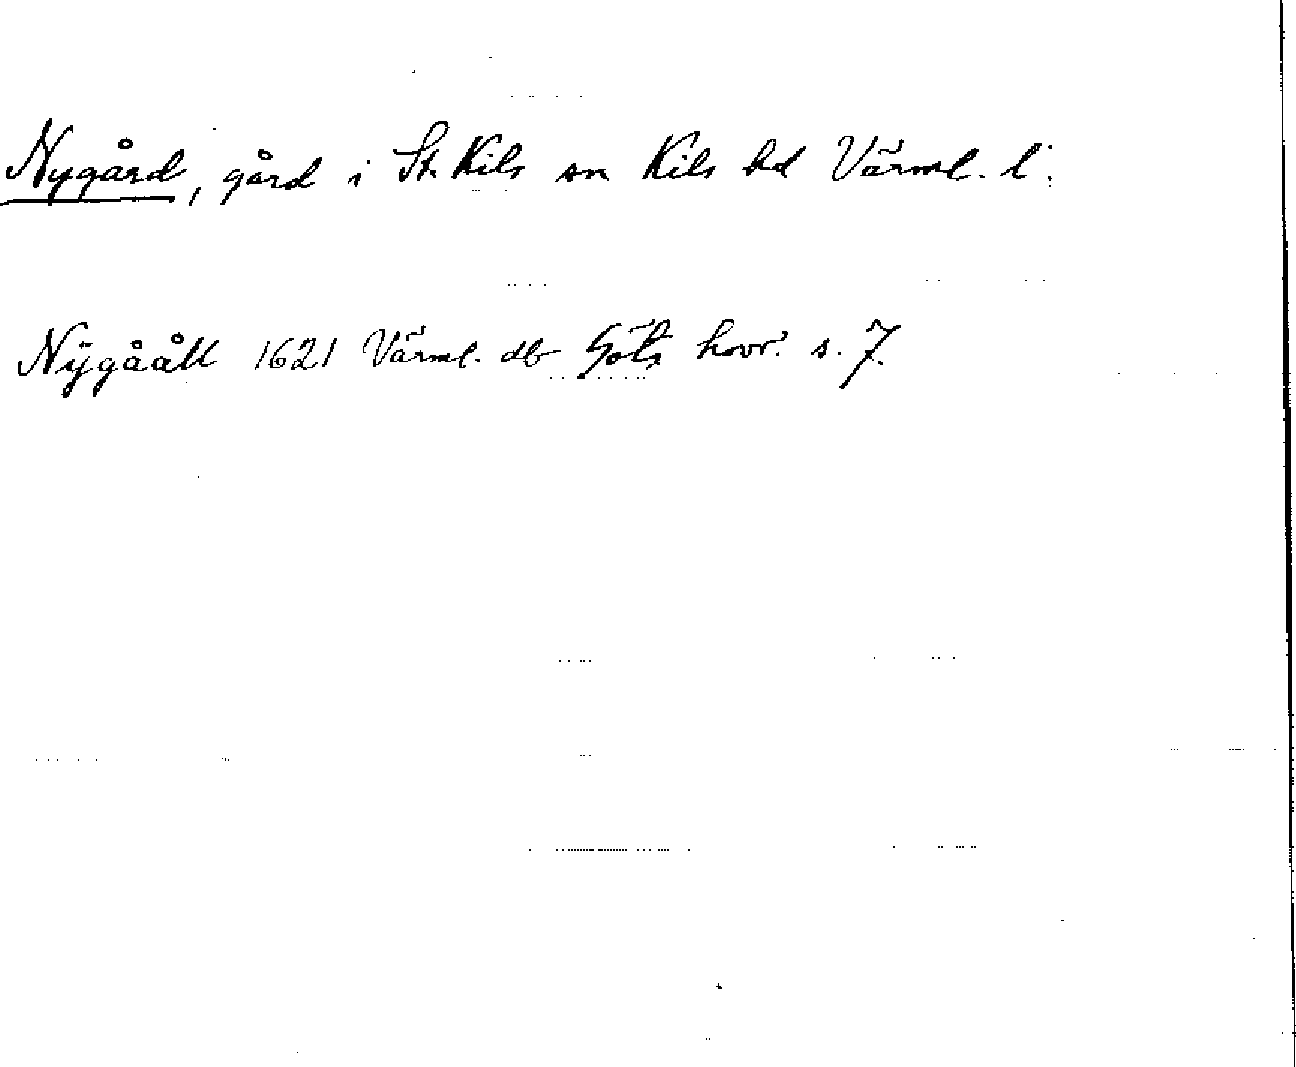 Nygård, gård i St. Kils sn Kils hd Värml. l.
Nÿgååll 1621 Värml. db Göta hovr. s. 7.